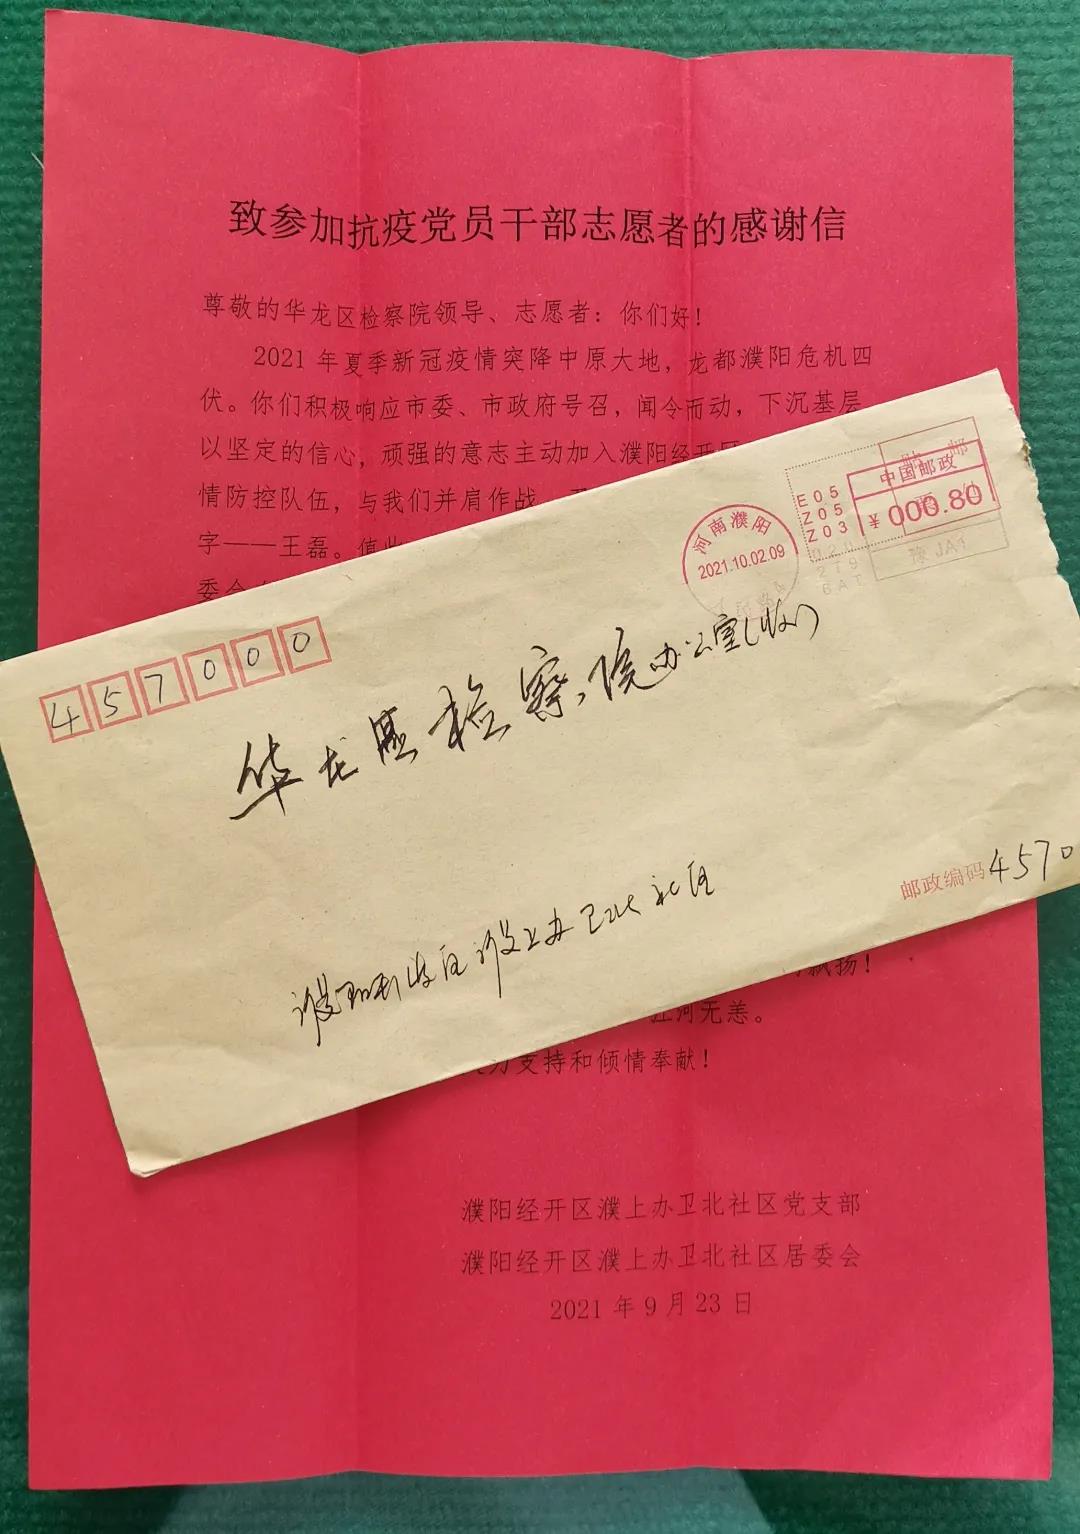 致参加抗疫党员干部志愿者的感谢信
尊敬的华龙区检察院领导、志愿者：你们好！
2021年夏季新冠疫情突降中原大地，龙都濮阳危机四
伏。你们积极响应市委、市政府号召，闻令而动，下沉基层
以坚定的信心，顽强的意志主动加入濮阳经开区
情防控队伍，与我们并肩作战
字——王磊。值此
委会
中国邮政
¥000.80
E05
Z05
Z03
河南濮阳
2021.10.02.09
457000
华龙区检察院办公室(收)
濮阳开发区濮上办卫北社区
邮政编码4570
飘扬！
江河无恙。
力支持和倾情奉献！
濮阳经开区濮上办卫北社区党支部
濮阳经开区濮上办卫北社区居委会
2021年9月23日